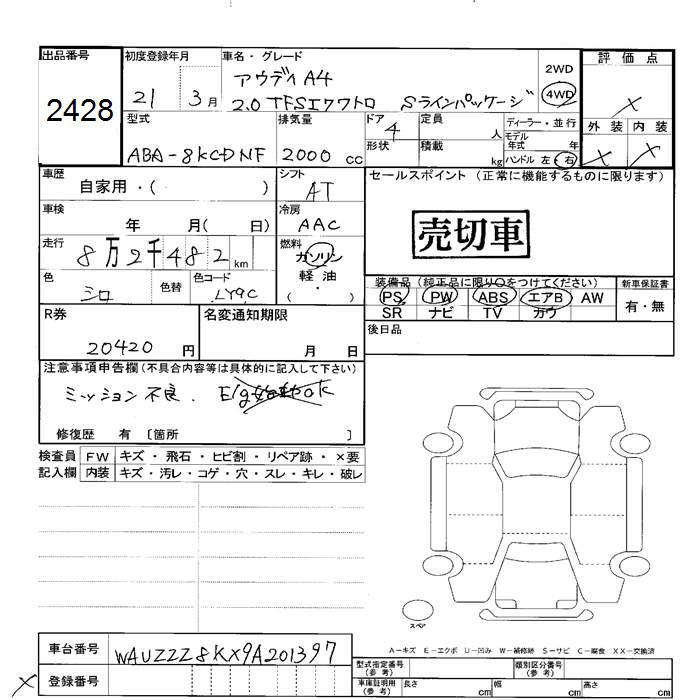 出品番号
2428
初度登録年月
21 3月
車名・グレード
アウディA4
2.0 TFSIクワトロ Sラインパッケージ
2WD
4WD
評価点
×
外装 内装
× ×
型式
ABA-8KCDNF
排気量
2000 cc
ドア
4
形状
定員
人
積載
kg
ディーラー・並行
モデル年式 年
ハンドル 左・右
車歴
自家用・( )
シフト
AT
車検
年 月( 日)
冷房
AAC
走行
8万2千482km
燃料
ガソリン
軽油
( ・ )
色
シロ
色替
色コード
LY9C
セールスポイント (正常に機能するものに限ります)
売切車
装備品 (純正品に限り○をつけてください)
PS PW ABS エアB AW
SR ナビ TV カワ
新車保証書
有・無
後日品
R券
20420 円
名変通知期限
月 日
注意事項申告欄(不具合内容等は具体的に記入して下さい)
ミッション不良. E/g
ok
修復歴 有 〔箇所 〕
検査員記入欄
FW キズ・飛石・ヒビ割・リペア跡・×要
内装 キズ・汚レ・コゲ・穴・スレ・キレ・破レ
スペア
A-キズ E-エクボ U-凹み W-補修跡 S-サビ C-腐食 XX-交換済
車台番号
WAUZZZ8KX9A201397
× 登録番号
型式指定番号(参考)
類別区分番号(参考)
車庫証明用(参考)
長さ cm 幅 cm 高さ cm